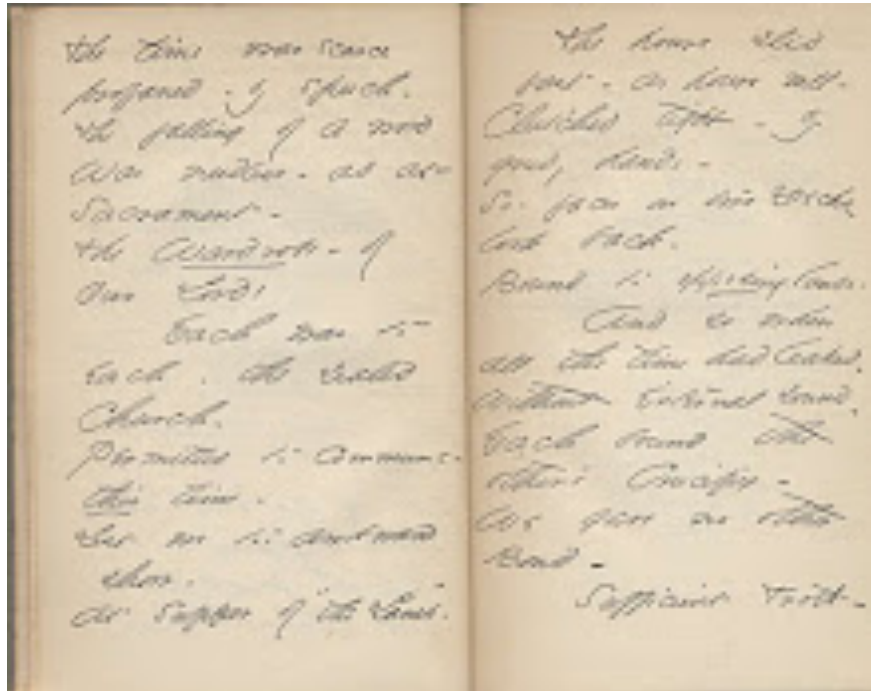 The time was scarce
profaned - by speech -
The falling of a word
Was needless - as at
Sacrament -
The Wardrobe - of
Our Lord!
Each was to
Each - the sealed
Church -
Permitted to commune -
this time -
Lest we too awkward
show -
At Supper of "the Lamb."
The hours slid
fast - as hours will -
Clutched tight - by
hands -
So - faces on two Decks
look back -
Bound to opposing lands.
And so when
all the time had leaked,
Without external sound,
Each bound the
other's Crucifix -
We gave no other
Bond -
Sufficient troth -